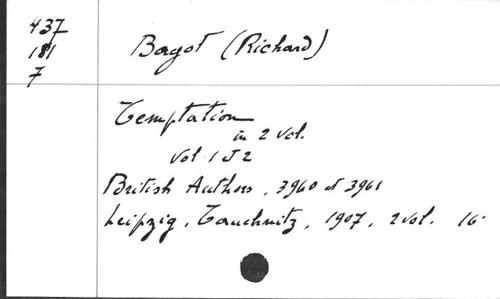 437
181
7
Bagot (Richard)
Temptation
in 2 vol.
Vol 1 et 2
British Authors, 3960 et 3961
Leipzig, Tauchnitz, 1907, 2 vol. 16°